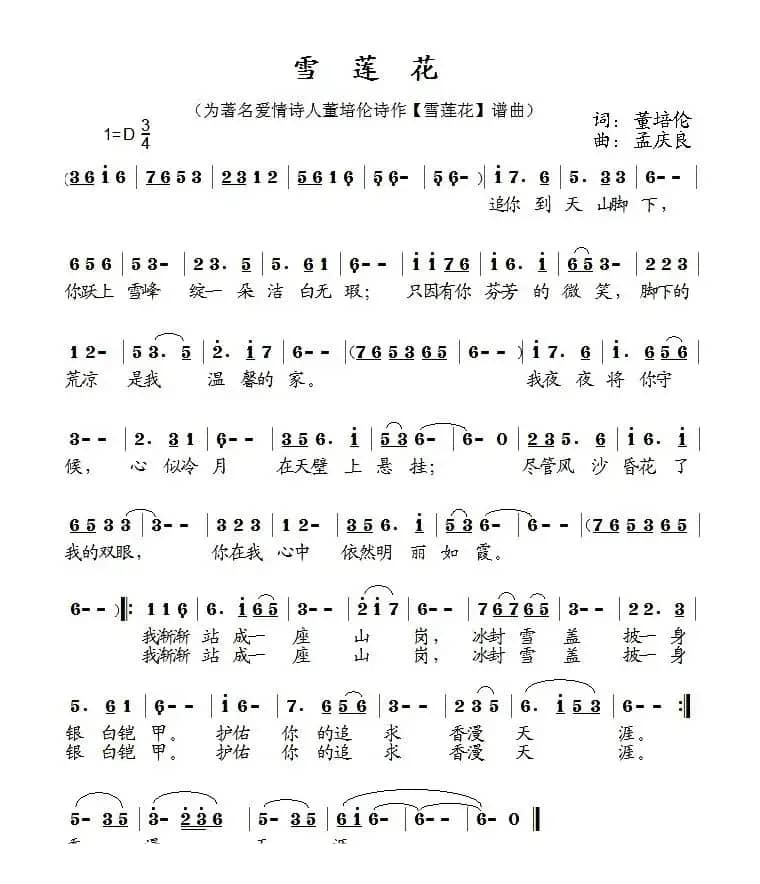 雪 莲 花
（为著名爱情诗人董培伦诗作【雪莲花】谱曲）
1=D 3/4
词：董培伦
曲：孟庆良
(3 6 i 6 | 7 6 5 3 | 2 3 1 2 | 5 6 1 6 | 5 6 - | 5 6 - ) | i 7. 6 | 5. 3 3 | 6 - - |
追你 到 天 山脚 下，
6 5 6 | 5 3 - | 2 3. 5 | 5. 6 1 | 6 - - | i i 7 6 | i 6. i | 6 5 3 - | 2 2 3 |
你跃上 雪峰 绽一 朵 洁 白无 瑕； 只因有你 芬芳 的 微 笑，脚下的
1 2 - | 5 3. 5 | 2. i 7 | 6 - - | (7 6 5 3 6 5 | 6 - - ) | i 7. 6 | i. 6 5 6 |
荒凉 是我 温 馨的 家。 我夜 夜 将 你守
3 - - | 2. 3 1 | 6 - - | 3 5 6. i | 5 3 6 - | 6 - 0 | 2 3 5. 6 | i 6. i |
候， 心 似冷 月 在天壁 上 悬 挂； 尽管风 沙 昏花 了
6 5 3 3 | 3 - - | 3 2 3 | 1 2 - | 3 5 6. i | 5 3 6 - | 6 - - | (7 6 5 3 6 5 |
我的双眼， 你在我 心中 依然明 丽 如 霞。
6 - - ) ‖: 1 1 6 | 6. i 6 5 | 3 - - | 2 i 7 | 6 - - | 7 6 7 6 5 | 3 - - | 2 2. 3 |
我渐渐 站 成一 座 山 岗， 冰封 雪 盖 披一 身
我渐渐 站 成一 座 山 岗， 冰封 雪 盖 披一 身
5. 6 1 | 6 - - | i 6 - | 7. 6 5 6 | 3 - - | 2 3 5 | 6. i 5 3 | 6 - - :‖
银 白铠 甲。 护佑 你 的追 求 香漫 天 涯。
银 白铠 甲。 护佑 你 的追 求 香漫 天 涯。
5 - 3 5 | 3 - 2 3 6 | 5 - 3 5 | 6 i 6 - | 6 - - | 6 - 0 ‖